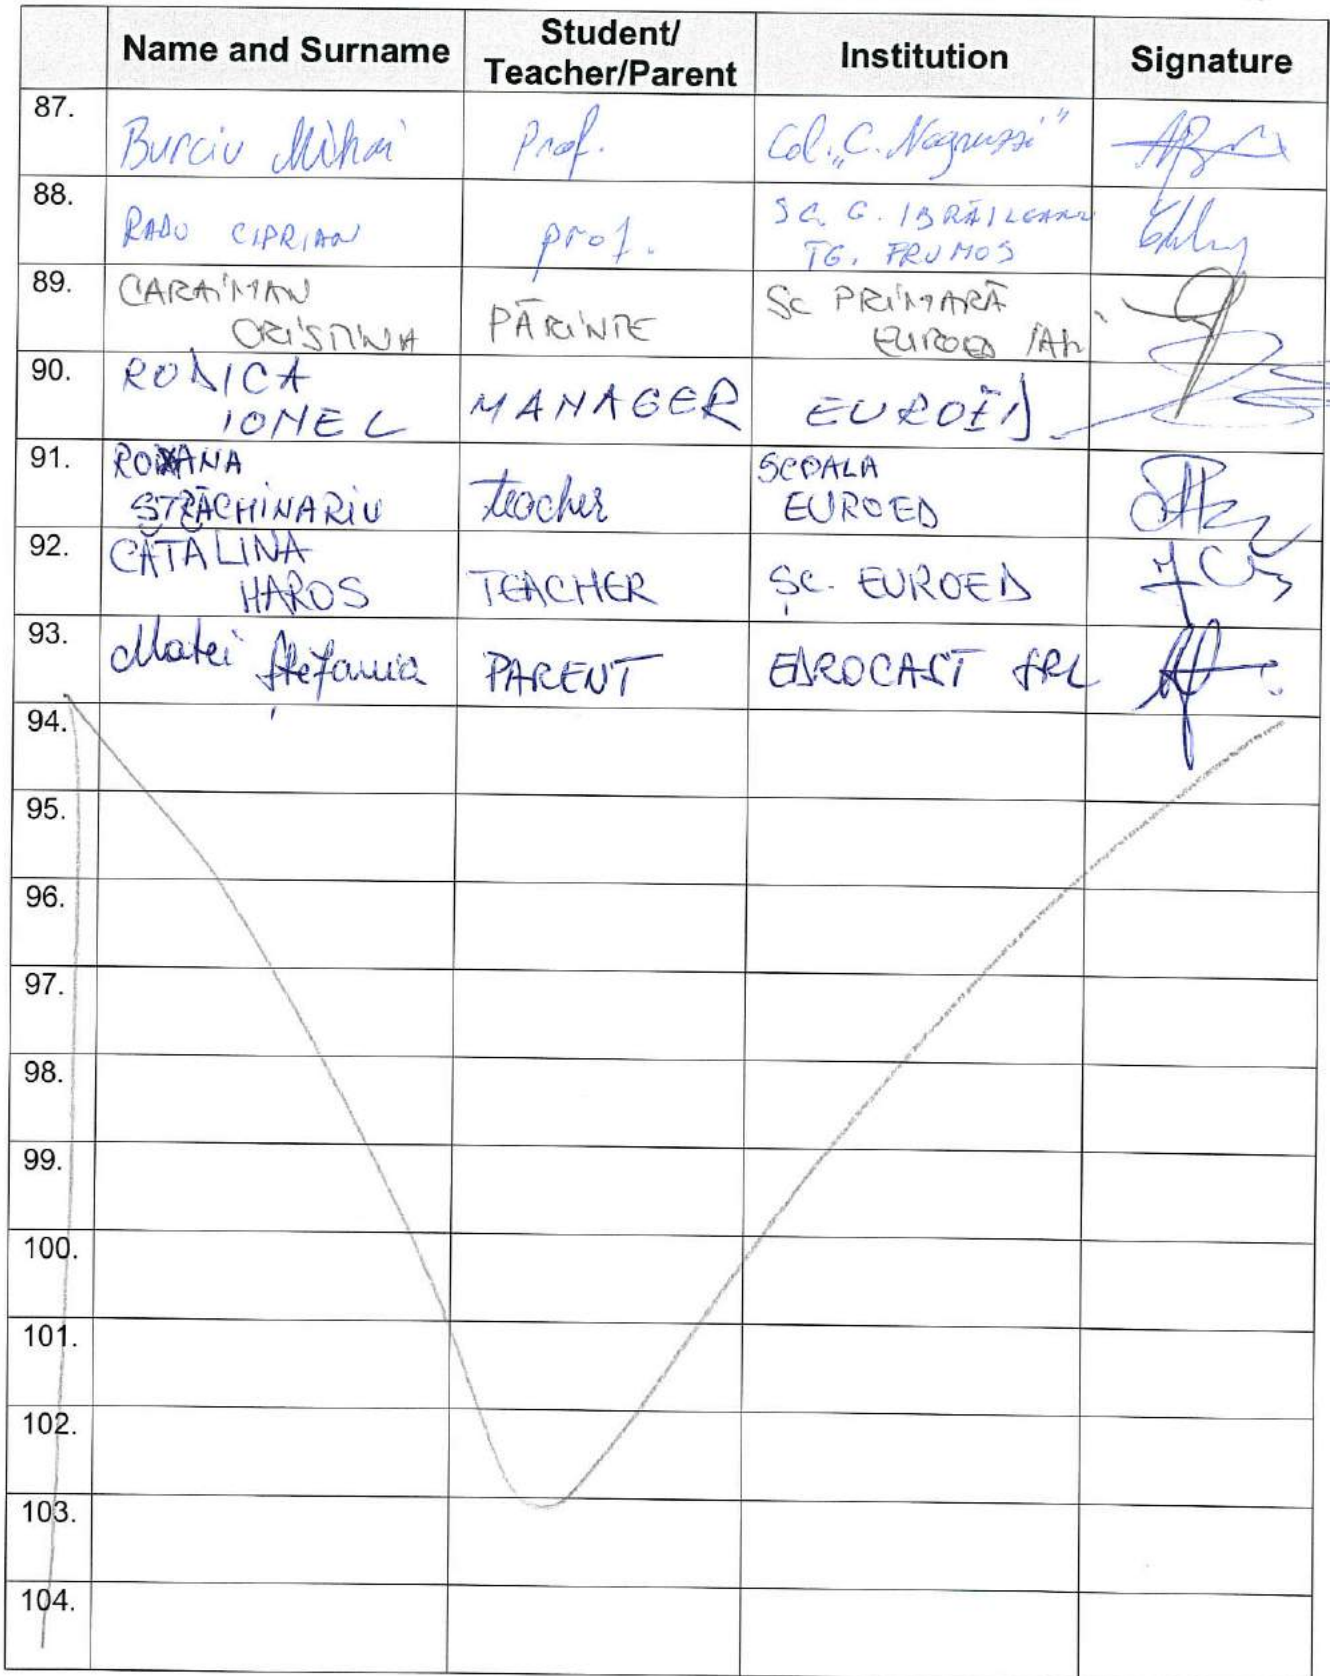 Name and Surname
Student/
Teacher/Parent
Institution
Signature
87.
Burciu Mihai
Prof.
Col. „C. Negruzzi"
88.
RADU CIPRIAN
prof.
SC. G. IBRĂILEANU
TG. FRUMOS
89.
CARAIMAN
CRISTINA
PĂRINTE
SC PRIMARĂ
EUROED
90.
RODICA
IONEL
MANAGER
EUROED
91.
ROXANA
STRĂCHINARIU
teacher
SCOALA
EUROED
92.
CĂTĂLINA
HAROS
TEACHER
ȘC. EUROED
93.
Matei Ștefania
PARENT
EUROCAST SRL
94.
95.
96.
97.
98.
99.
100.
101.
102.
103.
104.